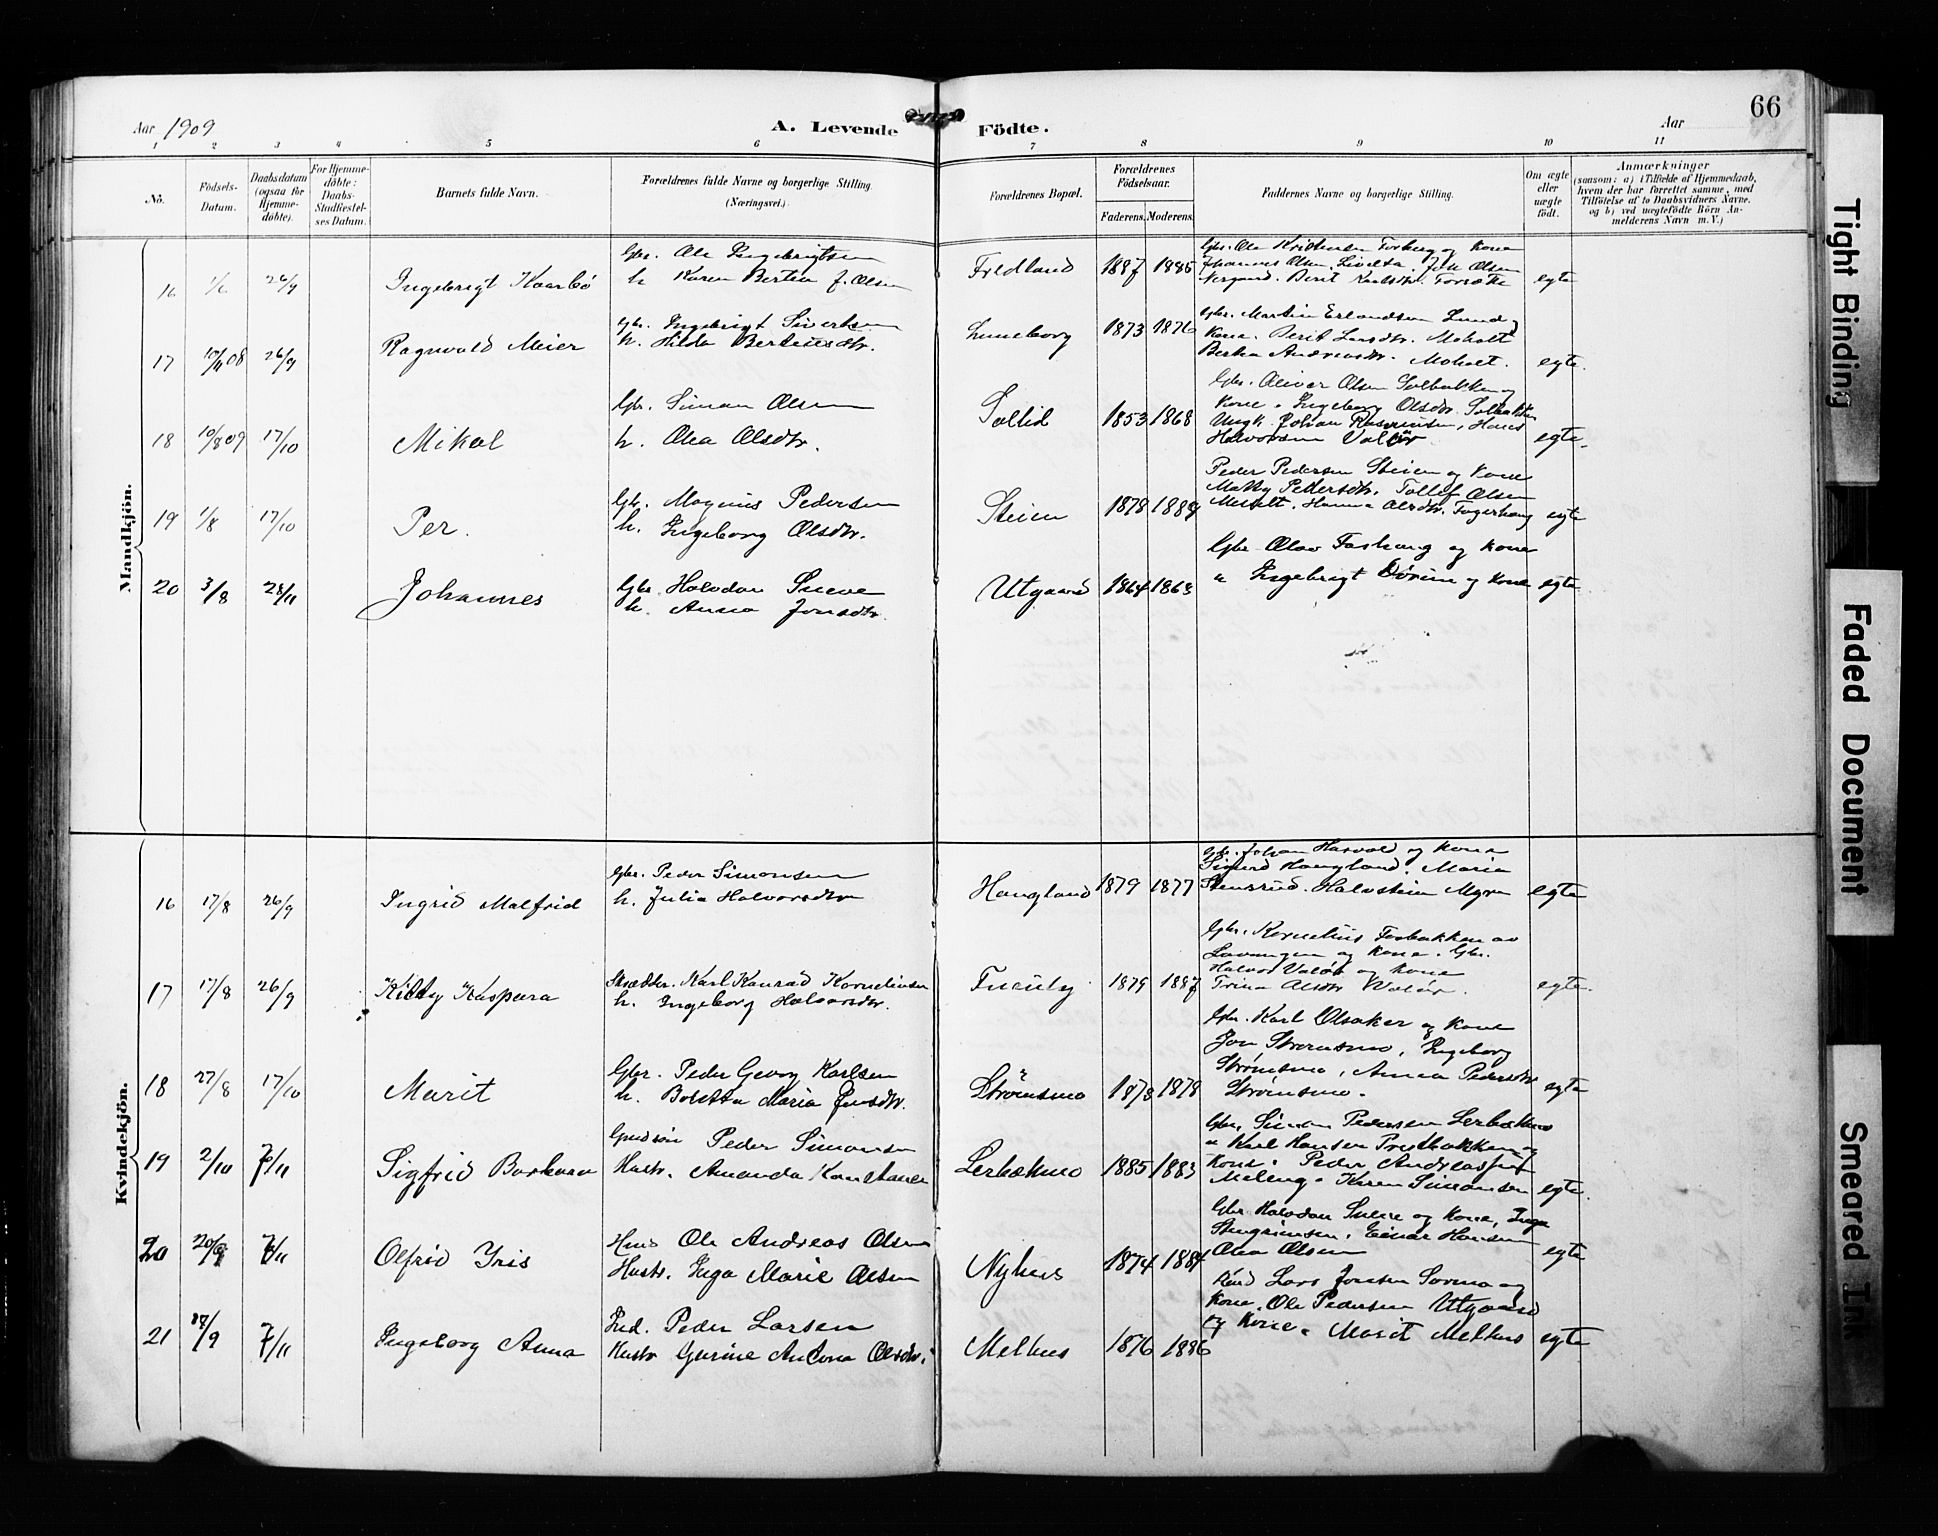 66
Aar 1909
A. Levende Födte.
Aar
1 2 3 4 5 6 7 8 9 10 11
No.
Födsels-Datum.
Daabsdatum (ogsaa for Hjemmedöbte).
For Hjemmedöbte: Daabs-Stadfæstelses Datum.
Barnets fulde Navn.
Forældrenes fulde Navne og borgerlige Stilling. (Næringsvei.)
Forældrenes Bopæl.
Forældrenes Födselsaar.
Faderens. Moderens.
Faddernes Navne og borgerlige Stilling.
Om ægte eller uægte födt.
Anmærkninger
(saasom: a) i Tilfælde af Hjemmedaab,
hvem der har forrettet samme, med
Tilföielse af to Daabsvidners Navne,
og b) ved uægtefödte Börn An-
melderens Navn m. V.)
Mandkjön.
16 1/6 26/9 Ingebrigt Kaarbö
Gbr. Ole Ingebrigtsen
h. Karen Bertea J. Olsen
Fredland 1887 1885
Gbr. Ole Kristensen Forberg og Kone
Johannes Olsen, Olsen
Berit
egte
17 10/11 08 26/9 Ragnvald Meier
Gbr. Ingebrigt Sivertsen
h. Hilda Berteusdtr.
Luneborg 1873 1876
Gbr. Martin Erlandsen Lund og
Kone. Berit Larsdtr. Moholt
Bertea Andreasdtr. Moholt.
egte.
18 10/8 09 17/10 Mikal
Gbr. Simon Olsen
h. Olea Olsdtr.
Sollid 1853 1868
Gbr. Oliver Olsen Solbakken og
Kone. Ingeborg Olsdtr. Solbakken
Ungk. Johan Rasmussen, Hans
Halvorsen Valör.
egte.
19 1/8 17/10 Per.
Gbr. Magnus Pedersen
h. Ingeborg Olsdtr.
Steien 1878 1889
Peder Pedersen Steien og Kone
Pedersdtr. Tollef Olsen
Hanna Olsdtr. Fagerhaug
egte
20 3/8 28/11 Johannes
Gbr. Halvdan Sneve
h. Anna Jonsdtr.
Utgaard 1864 1863
Gbr. Olav Foshaug og Kone
" Ingebrigt og Kone
egte
Kvindekjön.
16 17/8 26/9 Ingrid Malfrid
Gbr. Peder Simonsen
h. Julia Halvorsdtr
Haugland 1879 1877
Gbr. Johan og Kone
Sigurd Haugland. Maria
Stensrud. Halvstein Myrn
egte
17 17/8 26/9 Kitty Kaspara
Skrædder. Karl Konrad Korneliusen
h. Ingeborg Halvorsdtr.
1879 1887
Gbr. Kornelius Fosbakken av
Lavangen og Kone. Gbr.
Halvor Valör og Kone
Trina Olsdtr Valör.
egte.
18 27/8 17/10 Marit
Gbr. Peder Georg Karlsen
h. Boletta Maria Jensdtr.
Strömsmo 1878 1878
Gbr. Karl Olsaker og Kone
Jon Strømsmo, Ingeborg
Strømsmo, Anna Pedersdtr
Strømsmo.
egte
19 2/10 7/11 Sigfrid Barbara
Peder Simonsen
Hustr. Amanda Konstance
Lerbækmo 1885 1883
Gbr. Simon Pedersen Lerbækmo
" Karl Hansen Prestbakken og
Kone. Peder Andreassen
Meleng. Karen Simonsen
egte.
20 20/9 7/11 Olfrid Iris
Ole Andreas Olsen
Hustr. Inga Marie Olsen
Nyhus 1874 1884
Gbr. Halvdan Sneve og Kone, Inga
Einar Hansen
Olea Olsen
egte
21 28/9 7/11 Ingeborg Anna
Ind. Peder Larsen
Hustr Gurine Antona Olsdtr.
Melhus 1876 1886
Lars Jonsen Sørmo og
Kone. Ole Pedersen Utgaard
og Kone. Marit Melhus
egte
Tight Binding
Faded Document
Smeared Ink